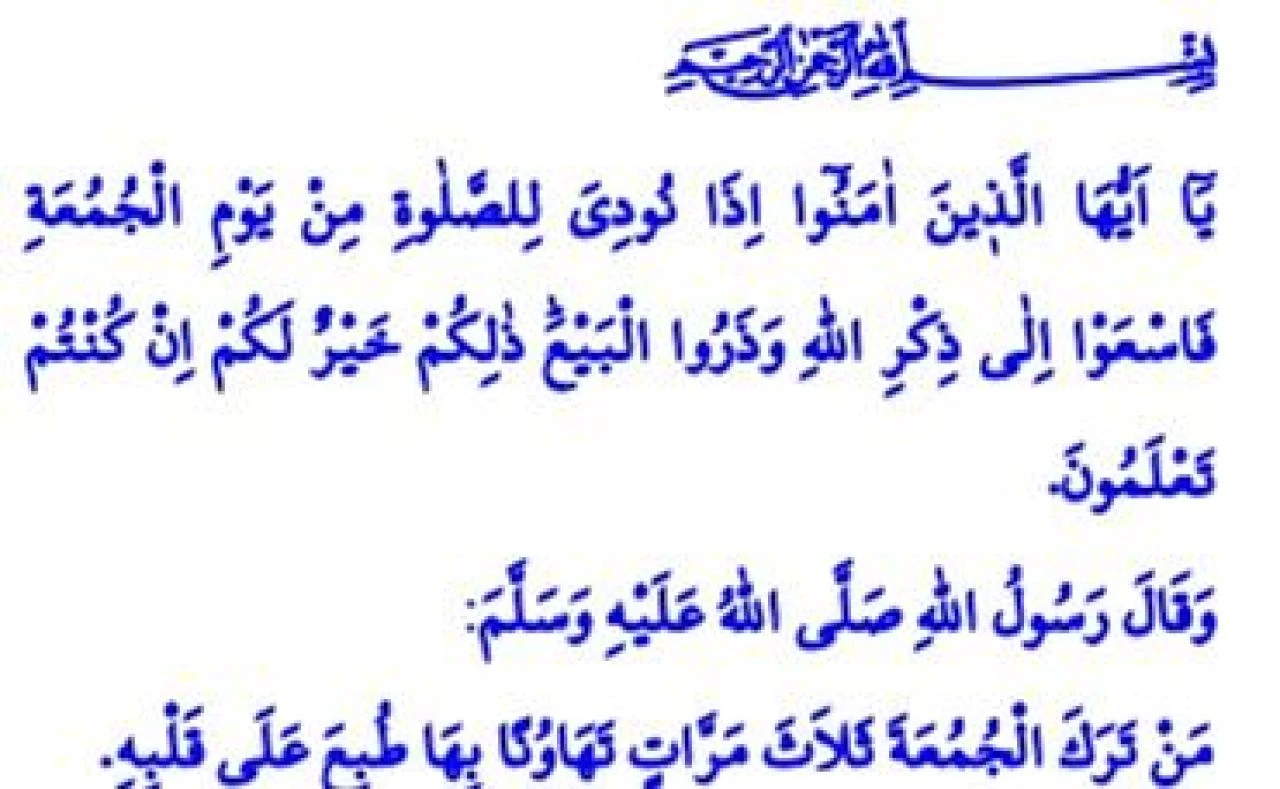 بِسْمِ اللّٰهِ الرَّحْمٰنِ الرَّحِيمِ
يَٓا اَيُّهَا الَّذ۪ينَ اٰمَنُٓوا اِذَا نُودِىَ لِلصَّلٰوةِ مِنْ يَوْمِ الْجُمُعَةِ
فَاسْعَوْا اِلٰى ذِكْرِ اللّٰهِ وَذَرُوا الْبَيْعَۜ ذٰلِكُمْ خَيْرٌ لَكُمْ اِنْ كُنْتُمْ
تَعْلَمُونَ.
وَقَالَ رَسُولُ اللّٰهِ صَلَّى اللّٰهُ عَلَيْهِ وَسَلَّمَ:
مَنْ تَرَكَ الْجُمُعَةَ ثَلاَثَ مَرَّاتٍ تَهَاوُنًا بِهَا طُبِعَ عَلَى قَلْبِهِ.